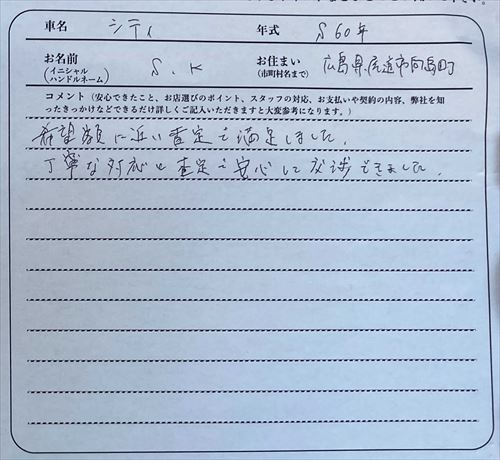 車名 シティ 年式 S60年
お名前 (イニシャル ハンドルネーム) S.K お住まい (市町村名まで) 広島県尾道市向島町
コメント（安心できたこと、お店選びのポイント、スタッフの対応、お支払いや契約の内容、弊社を知
ったきっかけなどできるだけ詳しくご記入いただきますと大変参考になります。）
希望額に近い査定で満足しました。
丁寧な対応と査定で安心して交渉できました。